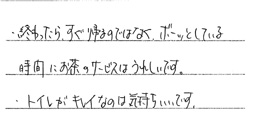 ・終わったら、すぐ帰るのではなく、ボーッとしている
時間にお茶のサービスはうれしいです。
・トイレがキレイなのは気持ちいいです。